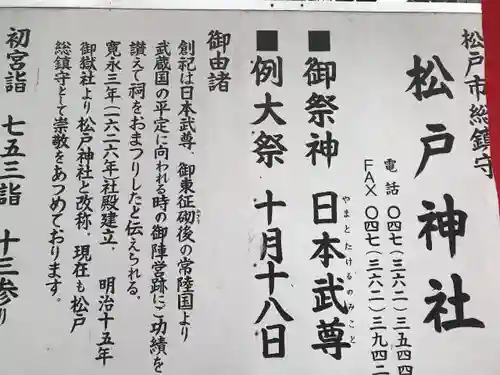 松戸市総鎮守
松戸神社
電話 〇四七(三六二)三五四四
FAX 〇四七(三六二)三九四二
■御祭神 日本武尊
やまとたけるのみこと
■例大祭 十月十八日
御由諸
創祀は日本武尊、御東征砌後の常陸国より
みぎり
武蔵国の平定に向われる時の御陣営跡にご功績を
讃えて祠をおまつりしたと伝えられる。
寛永三年(一六二六年社殿建立、 明治十五年
御嶽社より松戸神社と改称・現在も松戸
総鎮守として崇敬をあつめております。
初宮詣 七五三詣 十三参り